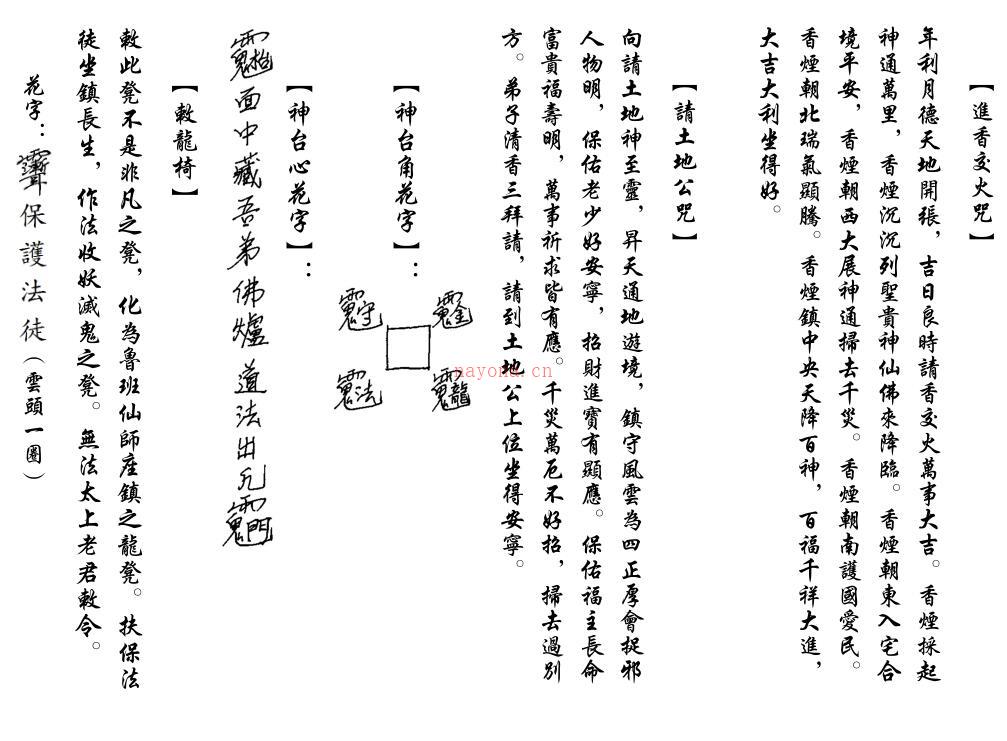 【進香交火咒】
年利月德天地開張，吉日良時請香交火萬事大吉。香煙採起
神通萬里，香煙沉沉列聖貴神仙佛來降臨。香煙朝東入宅合
境平安，香煙朝西大展神通掃去千災。香煙朝南護國愛民。
香煙朝北瑞氣顯騰。香煙鎮中央天降百神，百福千祥大進，
大吉大利坐得好。
【請土地公咒】
向請土地神至靈，昇天通地遊境，鎮守風雲為四正厚會捉邪
人物明，保佑老少好安寧，招財進寶有顯應。保佑福主長命
富貴福壽明，萬事祈求皆有應。千災萬厄不好招，掃去過別
方。弟子清香三拜請，請到土地公上位坐得安寧。
【神台角花字】：
【神台心花字】：
面中藏吾弟佛爐道法出
【敕龍椅】
敕此凳不是非凡之凳，化為魯班仙師座鎮之龍凳。扶保法
徒坐鎮長生，作法收妖滅鬼之凳。無法太上老君敕令。
花字：保護法徒（雲頭一圈）
nayona.cn